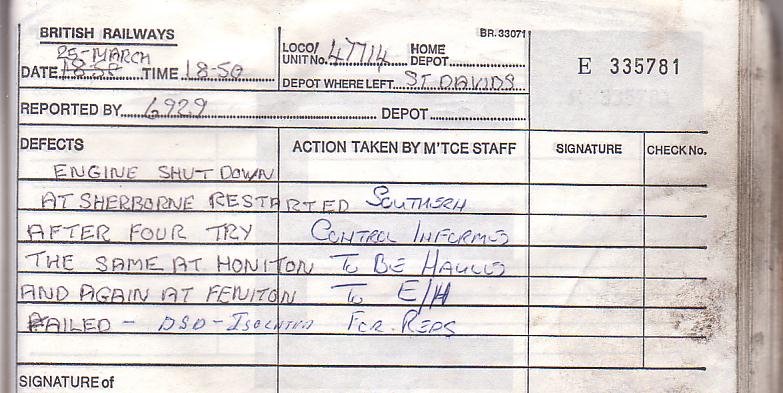 BRITISH RAILWAYS
BR. 33071
25-MARCH
DATE 18-50 TIME 18-50
LOCO/UNIT No. 47714 HOME DEPOT
DEPOT WHERE LEFT ST DAVIDS
E 335781
REPORTED BY 6929 DEPOT
DEFECTS ACTION TAKEN BY M'TCE STAFF SIGNATURE CHECK No.
ENGINE SHUT DOWN
AT SHERBORNE RESTARTED SOUTHERN
AFTER FOUR TRY CONTROL INFORMED
THE SAME AT HONITON TO BE HAULED
AND AGAIN AT FENITON TO E/H
FAILED - DSD-ISOLATED FOR. REPS
SIGNATURE of